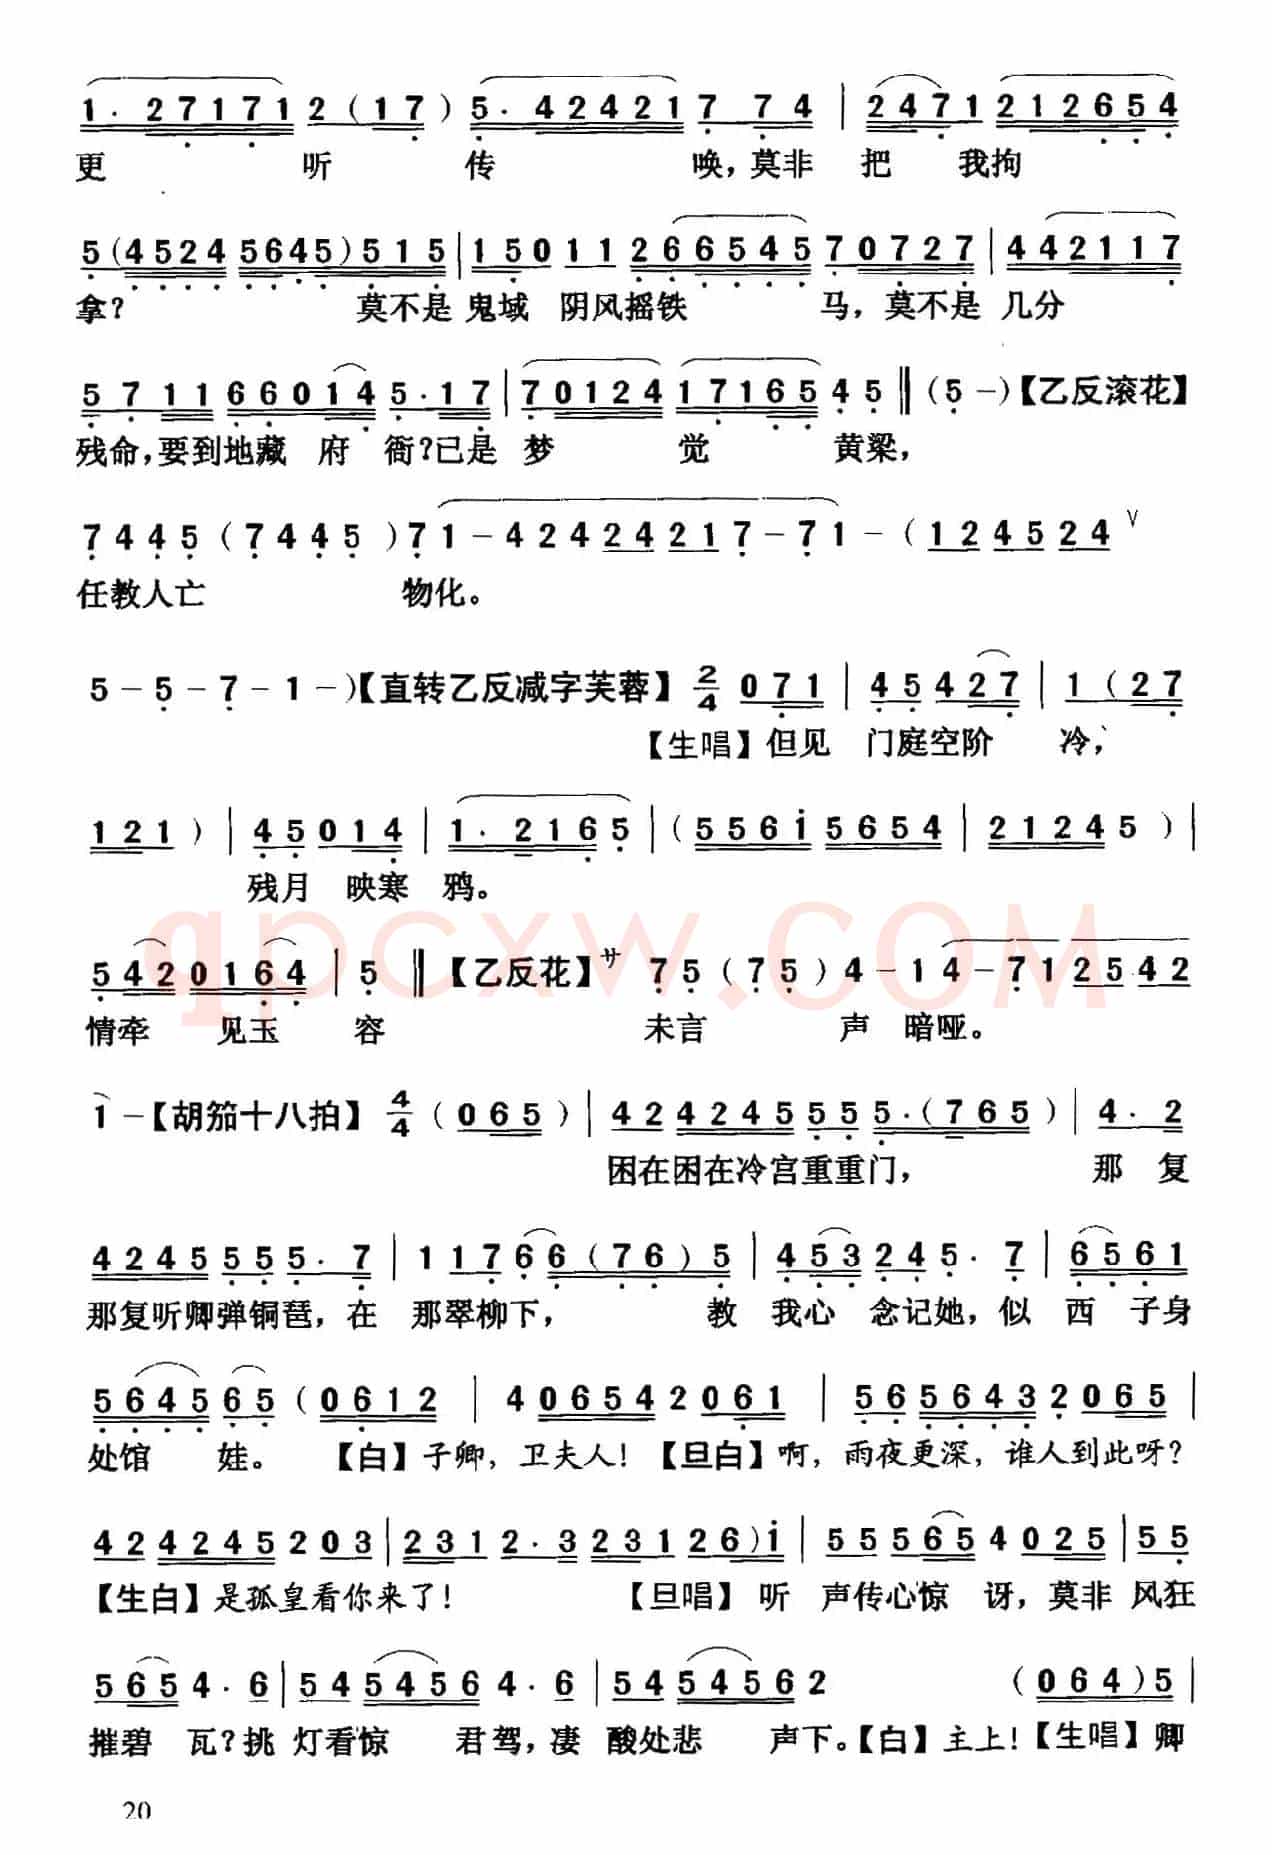 1·27171 2(17) 5·42421 7 74 | 2471 212654
更 听 传 唤，莫非 把 我拘
5(4524 5645)515 | 150 11 266545 70727 | 442117
拿？ 莫不是 鬼域 阴风摇铁 马，莫不是 几分
57 11 66014 5·17 | 70124 17165 45 ‖ (5-)【乙反滚花】
残命，要到地藏 府 衙？已是 梦 觉 黄粱，
7445(7445)71-42424217-71-(124524 V
任教人亡 物化。
5-5-7-1-)【直转乙反减字芙蓉】2/4 071 | 45427 | 1(27
【生唱】但见 门庭空阶 冷，
121) | 45014 | 1·2165 | (5561 5654 | 21245) |
残月 映寒 鸦。
5420164 | 5 ‖【乙反花】サ 75(75)4-14-712542
情牵 见玉 容 未言 声 暗哑。
1-【胡笳十八拍】4/4 (065) | 42424555 5·(765) | 4·2
困在困在冷宫重重门， 那 复
4245 555·7 | 11766(76)5 | 453245·7 | 6561
那复听卿弹铜琶，在 那翠柳下， 教 我心 念记她，似 西 子身
564565(0612 | 406542061 | 565643 2065 |
处馆 娃。 【白】子卿，卫夫人！【旦白】啊，雨夜更深，谁人到此呀？
424245203 | 2312·3231 26)1 | 55565 4025 | 55
【生白】是孤皇看你来了！ 【旦唱】 听 声传心惊 讶，莫非 风狂
565 4·6 | 54 5456 4·6 | 54 5456 2 (064)5 |
摧碧 瓦？挑 灯看惊 君驾，凄 酸处悲 声下。【白】主上！【生唱】卿
qpcxw.COM
20